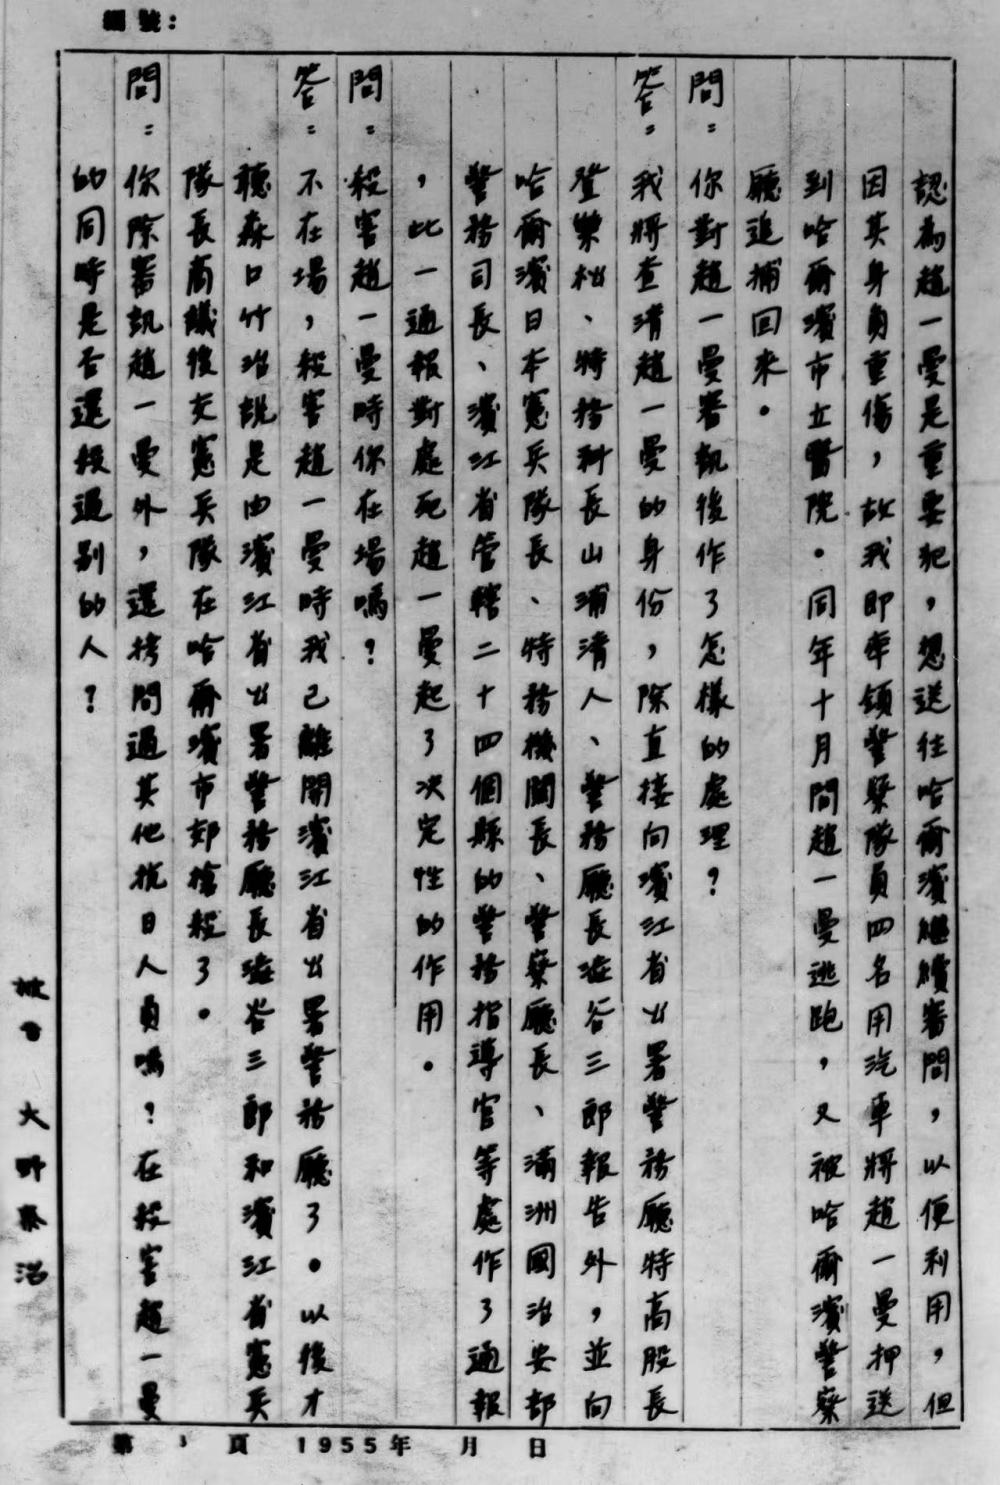 編號：
認為趙一曼是重要犯，想送往哈爾濱繼續審問，以便利用，但
因其身負重傷，故我即率領警察隊員四名用汽車將趙一曼押送
到哈爾濱市立醫院。同年十月間趙一曼逃跑，又被哈爾濱警察
廳追捕回來。
問：你對趙一曼審訊後作了怎樣的處理？
答：我將查清趙一曼的身份，除直接向濱江省公署警務廳特高股長
登樂松、特務科長山浦清人、警務廳長澁谷三郎報告外，並向
哈爾濱日本憲兵隊長、特務機關長、警察廳長、滿洲國治安部
警務司長、濱江省管轄二十四個縣的警務指導官等處作了通報
，此一通報對處死趙一曼起了決定性的作用。
問：殺害趙一曼時你在場嗎？
答：不在場，殺害趙一曼時我己離開濱江省公署警務廳了。以後才
聽森口竹治說是由濱江省公署警務廳長澁谷三郎和濱江省憲兵
隊長商議後交憲兵隊在哈爾濱市郊槍殺了。
問：你除審訊趙一曼外，還拷問過其他抗日人員嗎？在殺害趙一曼
的同時是否還殺過別的人？
大野泰治
第 3 頁 1955年 月 日